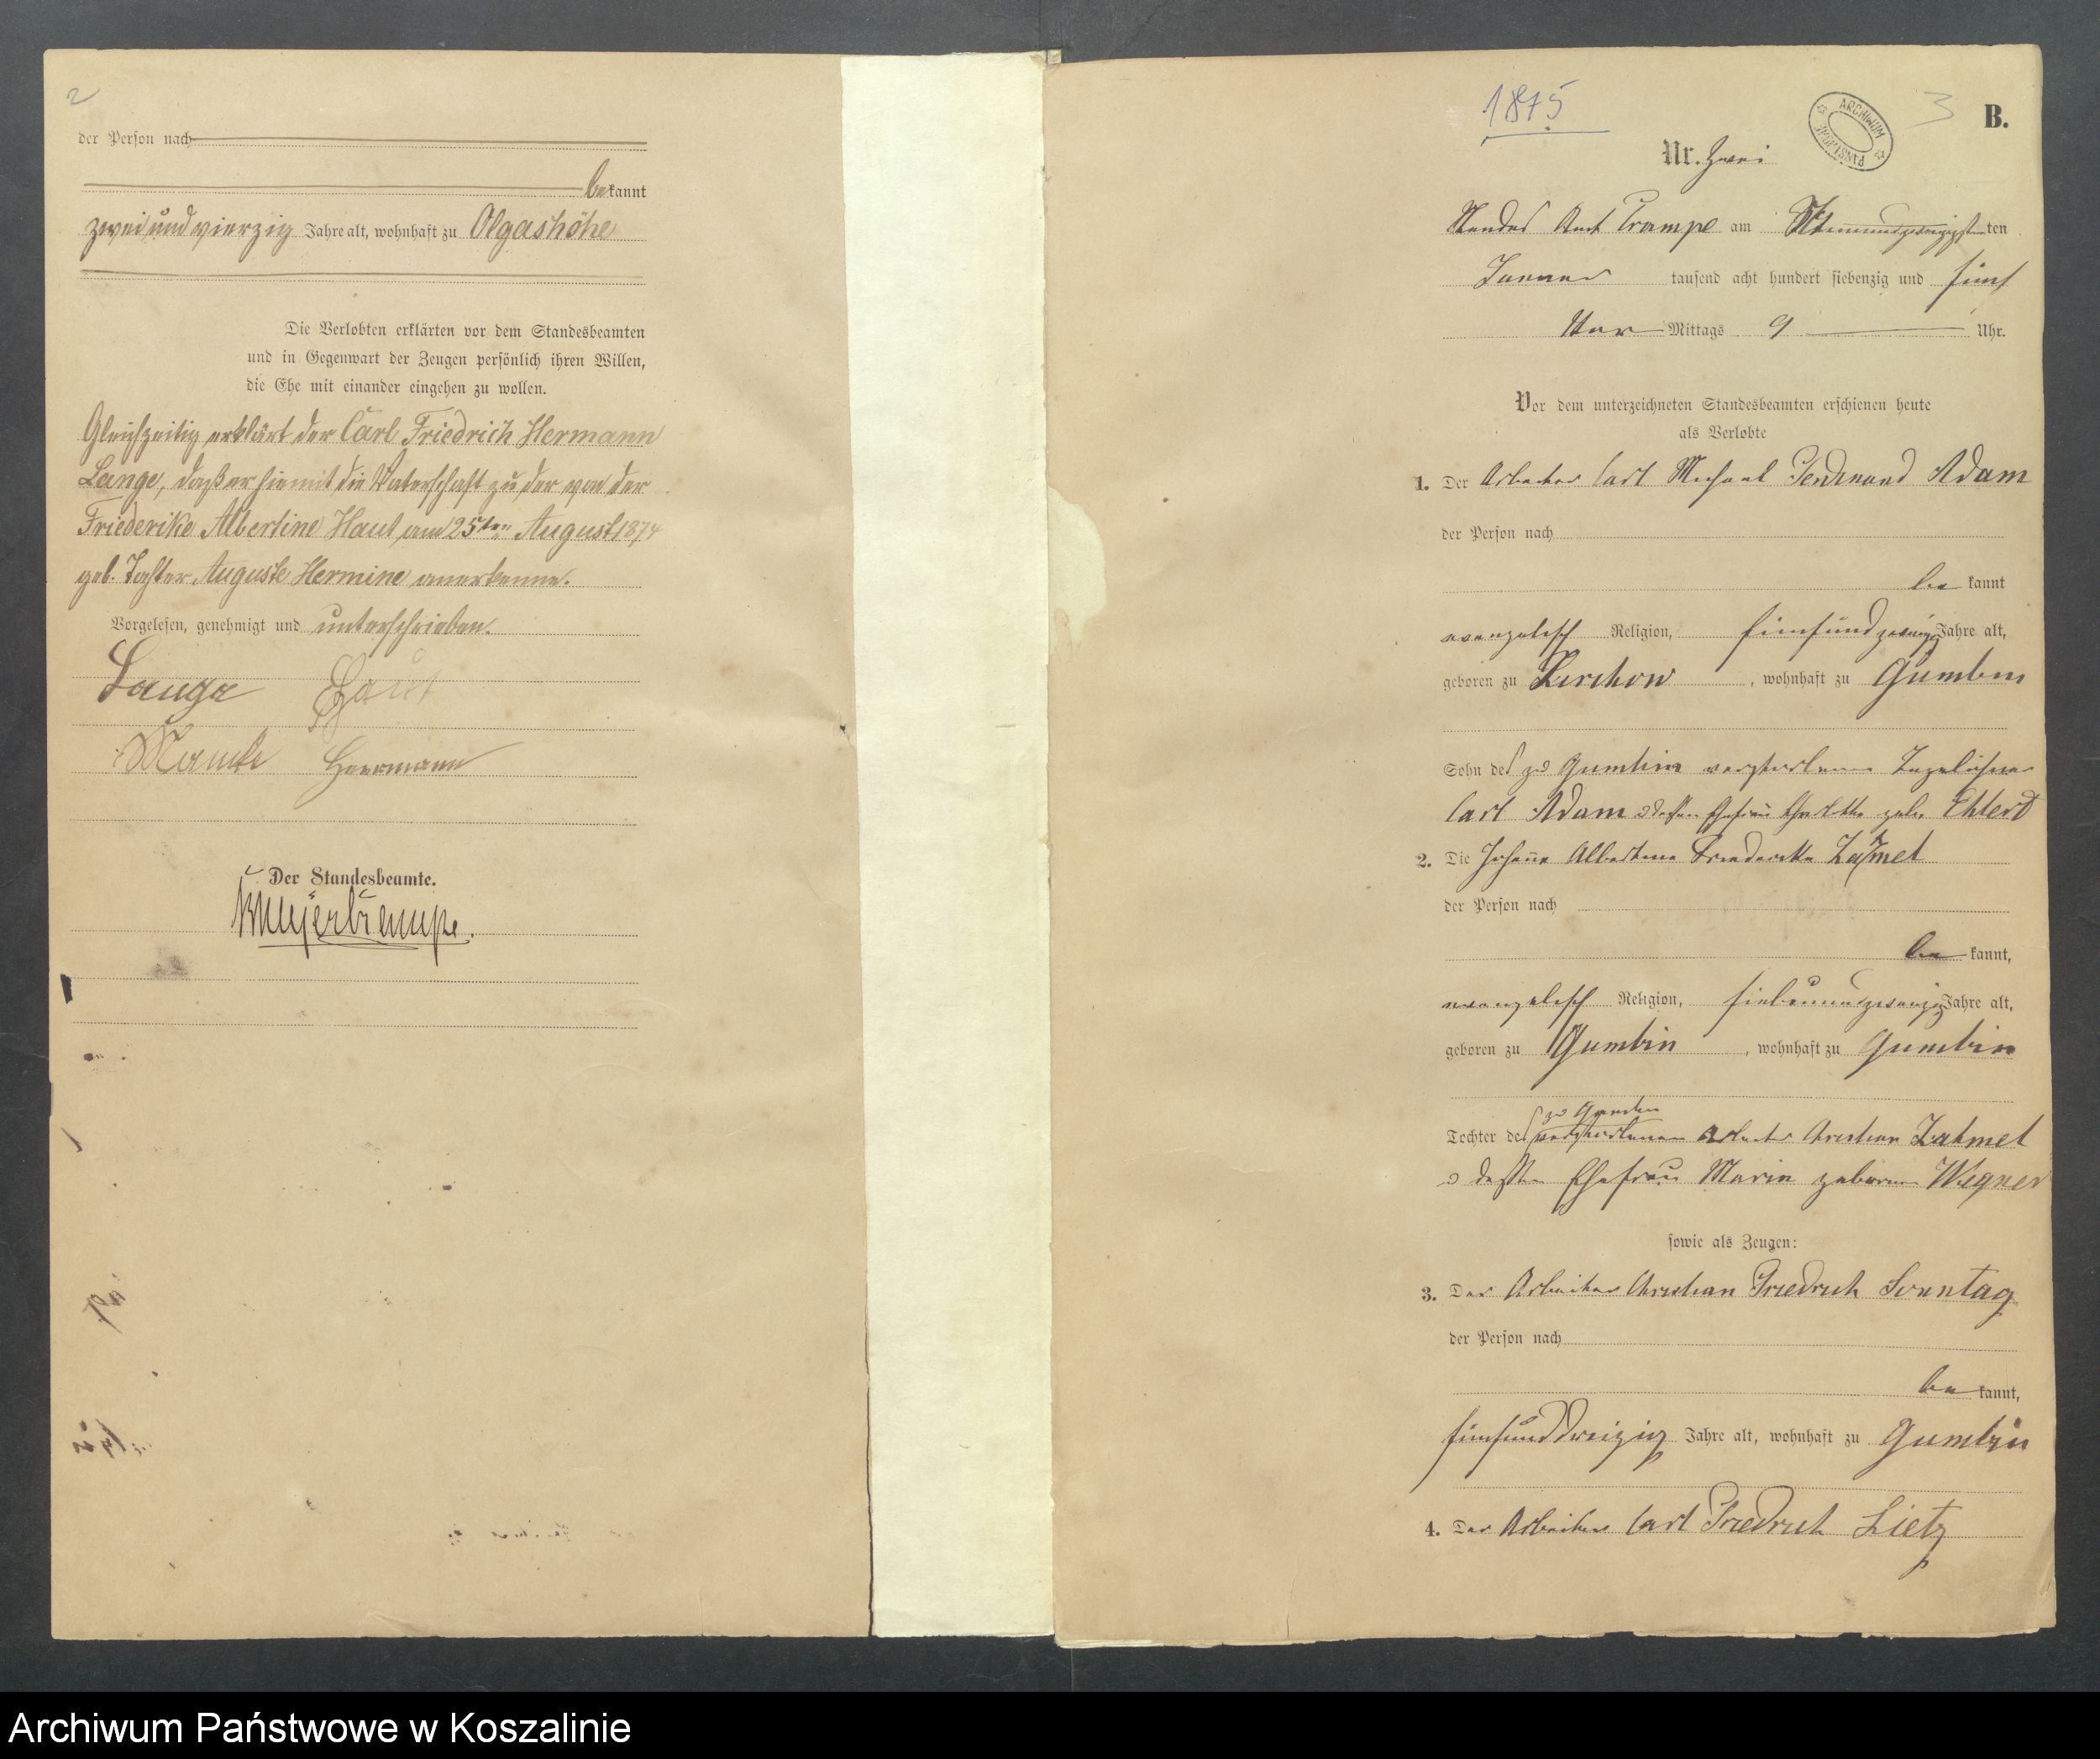 2
der Person nach
bekannt
zwei und vierzig Jahre alt, wohnhaft zu Olgashöhe
Die Verlobten erklärten vor dem Standesbeamten
und in Gegenwart der Zeugen persönlich ihren Willen,
die Ehe mit einander eingehen zu wollen.
Gleichzeitig erklärt der Carl Friedrich Hermann
Lange, daß er hiemit die Vaterschaft zu der von der
Friederike Albertine Haut am 25ten August 1874
geb. Tochter Auguste Hermine anerkenne.
Vorgelesen, genehmigt und unterschrieben.
Lange Haut
Herrmann
Der Standesbeamte.
1875
ARCHIWUM PAŃSTWOWE
3
B.
Nr. Zwei
Standes Amt Trampe am ten
Januar tausend acht hundert siebenzig und fünf
Vor Mittags 9 Uhr.
Vor dem unterzeichneten Standesbeamten erschienen heute
als Verlobte
1. Der Arbeiter Carl Michael Ferdinand Adam
der Person nach
be kannt
evangelisch Religion, fünfundzwanzig Jahre alt,
geboren zu Zirchow, wohnhaft zu Gumbin
Sohn des zu Gumbin verstorbenen Tagelöhner
Carl Adam u dessen Ehefrau Charlotte geb. Ehlert
2. Die Johanne Albertine Friederike Zahmel
der Person nach
be kannt,
evangelisch Religion, siebenundzwanzig Jahre alt,
geboren zu Gumbin, wohnhaft zu Gumbin
zu Gumbin
Tochter des verstorbenen Arbeiter Christian Zahmel
u dessen Ehefrau Marie geborene Wegner
sowie als Zeugen:
3. Der Arbeiter Christian Friedrich Sonntag
der Person nach
be kannt,
fünfunddreizig Jahre alt, wohnhaft zu Gumbin
4. Der Arbeiter Carl Friedrich Lietz
Archiwum Państwowe w Koszalinie